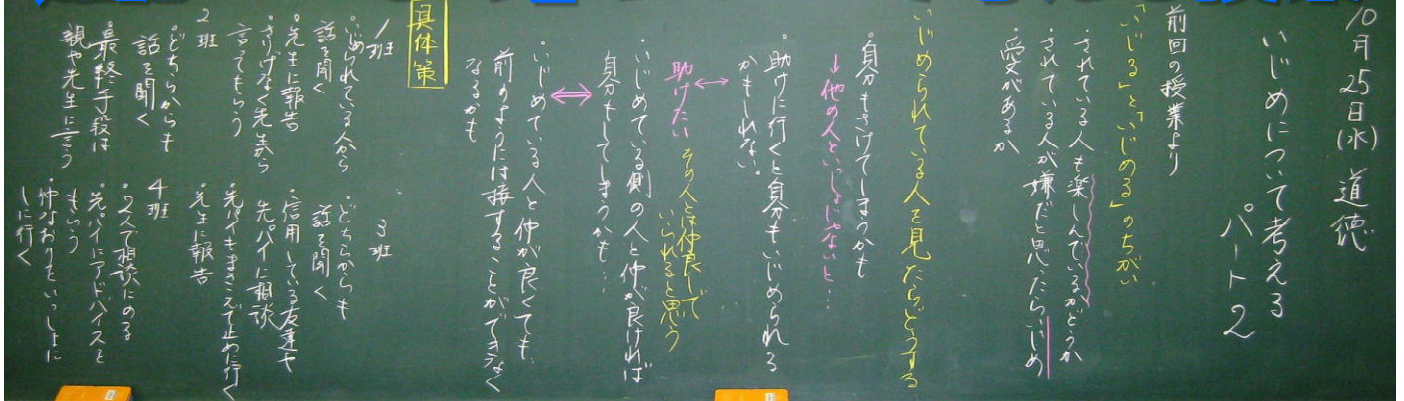 10月25日(水) 道徳
いじめについて考える
パート2
前回の授業より
「いじる」と「いじめる」のちがい
・されている人も楽しんでいるかどうか
・されている人が嫌だと思ったらいじめ
・愛があるか
いじめられている人を見たら、どうする
・自分もさけてしまうかも
↓他の人といっしょじゃないと…
・助けに行くと自分もいじめられる
かもしれない。
↔
助けたい その人とは仲良しで
いられると思う
・いじめている側の人と仲が良ければ
自分もしてしまうかも…
⇔
・いじめている人と仲が良くても、
前のようには接することができなく
なるかも
具体策
1班
・いじめられている人から
話を聞く
・先生に報告
・さりげなく先生から
言ってもらう
2班
・どちらからも
話を聞く
・最終手段は
親や先生に言う
3班
・どちらからも
話を聞く
・信用している友達や
先パイに相談
・先パイをまきこんで止めに行く
・先生に報告
4班
・2人で相談にのる
・先パイにアドバイスを
もらう
・仲なおりをいっしょに
しに行く